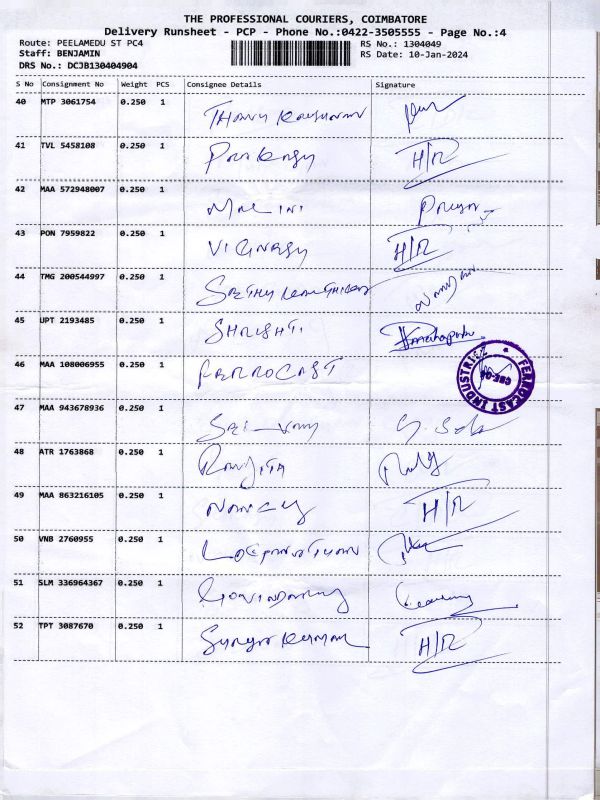 THE PROFESSIONAL COURIERS, COIMBATORE
Delivery Runsheet - PCP - Phone No.:0422-3505555 - Page No.:4
Route: PEELAMEDU ST PC4 RS No.: 1304049
Staff: BENJAMIN RS Date: 10-Jan-2024
DRS No.: DCJB130404904
S No Consignment No Weight PCS Consignee Details Signature
40 MTP 3061754 0.250 1
41 TVL 5458108 0.250 1 Prakash H/R
42 MAA 572948007 0.250 1 Malini Priya
43 PON 7959822 0.250 1 Vignesh H/R
44 TMG 200544997 0.250 1 Sethu Karthikey
45 UPT 2193485 0.250 1 Shrishti
46 MAA 108006955 1 FERROCAST
FERROCAST INDUSTRIEZ CBE-06
47 MAA 943678936 0.250 1
48 ATR 1763868 0.250 1 Ranjita
49 MAA 863216105 0.250 1 Nancy H/R
50 VNB 2760955 0.250 1 Loganathan
51 SLM 336964367 0.250 1 Govindaraj
52 TPT 3087670 0.250 1 Surya Kumar H/R